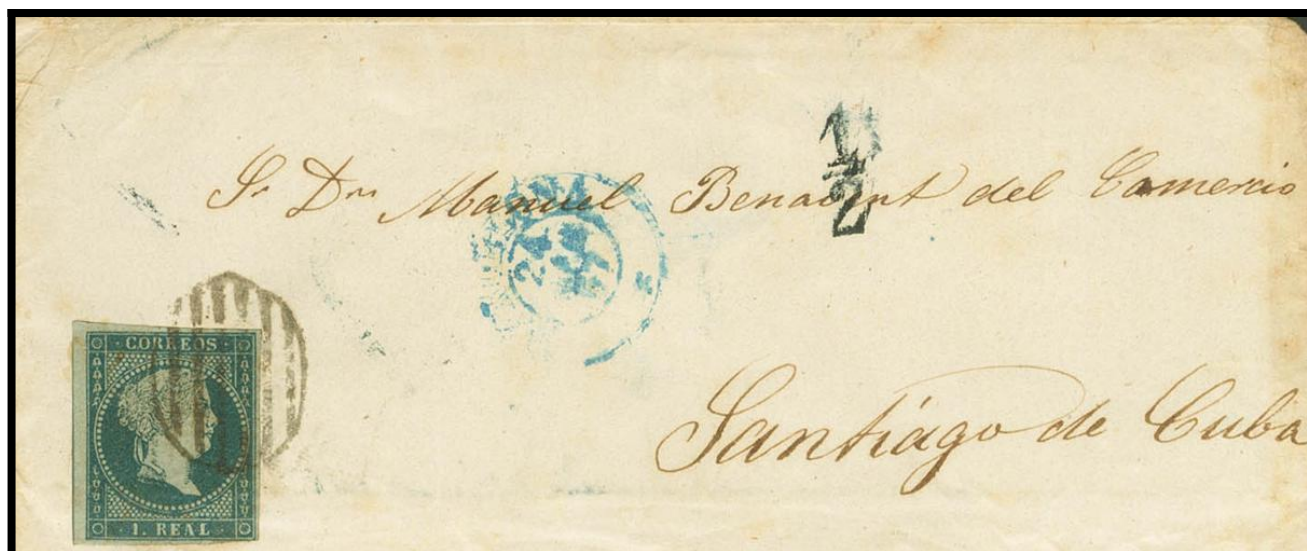 1/2
Sr Dn Manuel Benavent del Comercio
24
Santiago de Cuba
CORREOS
1. REAL